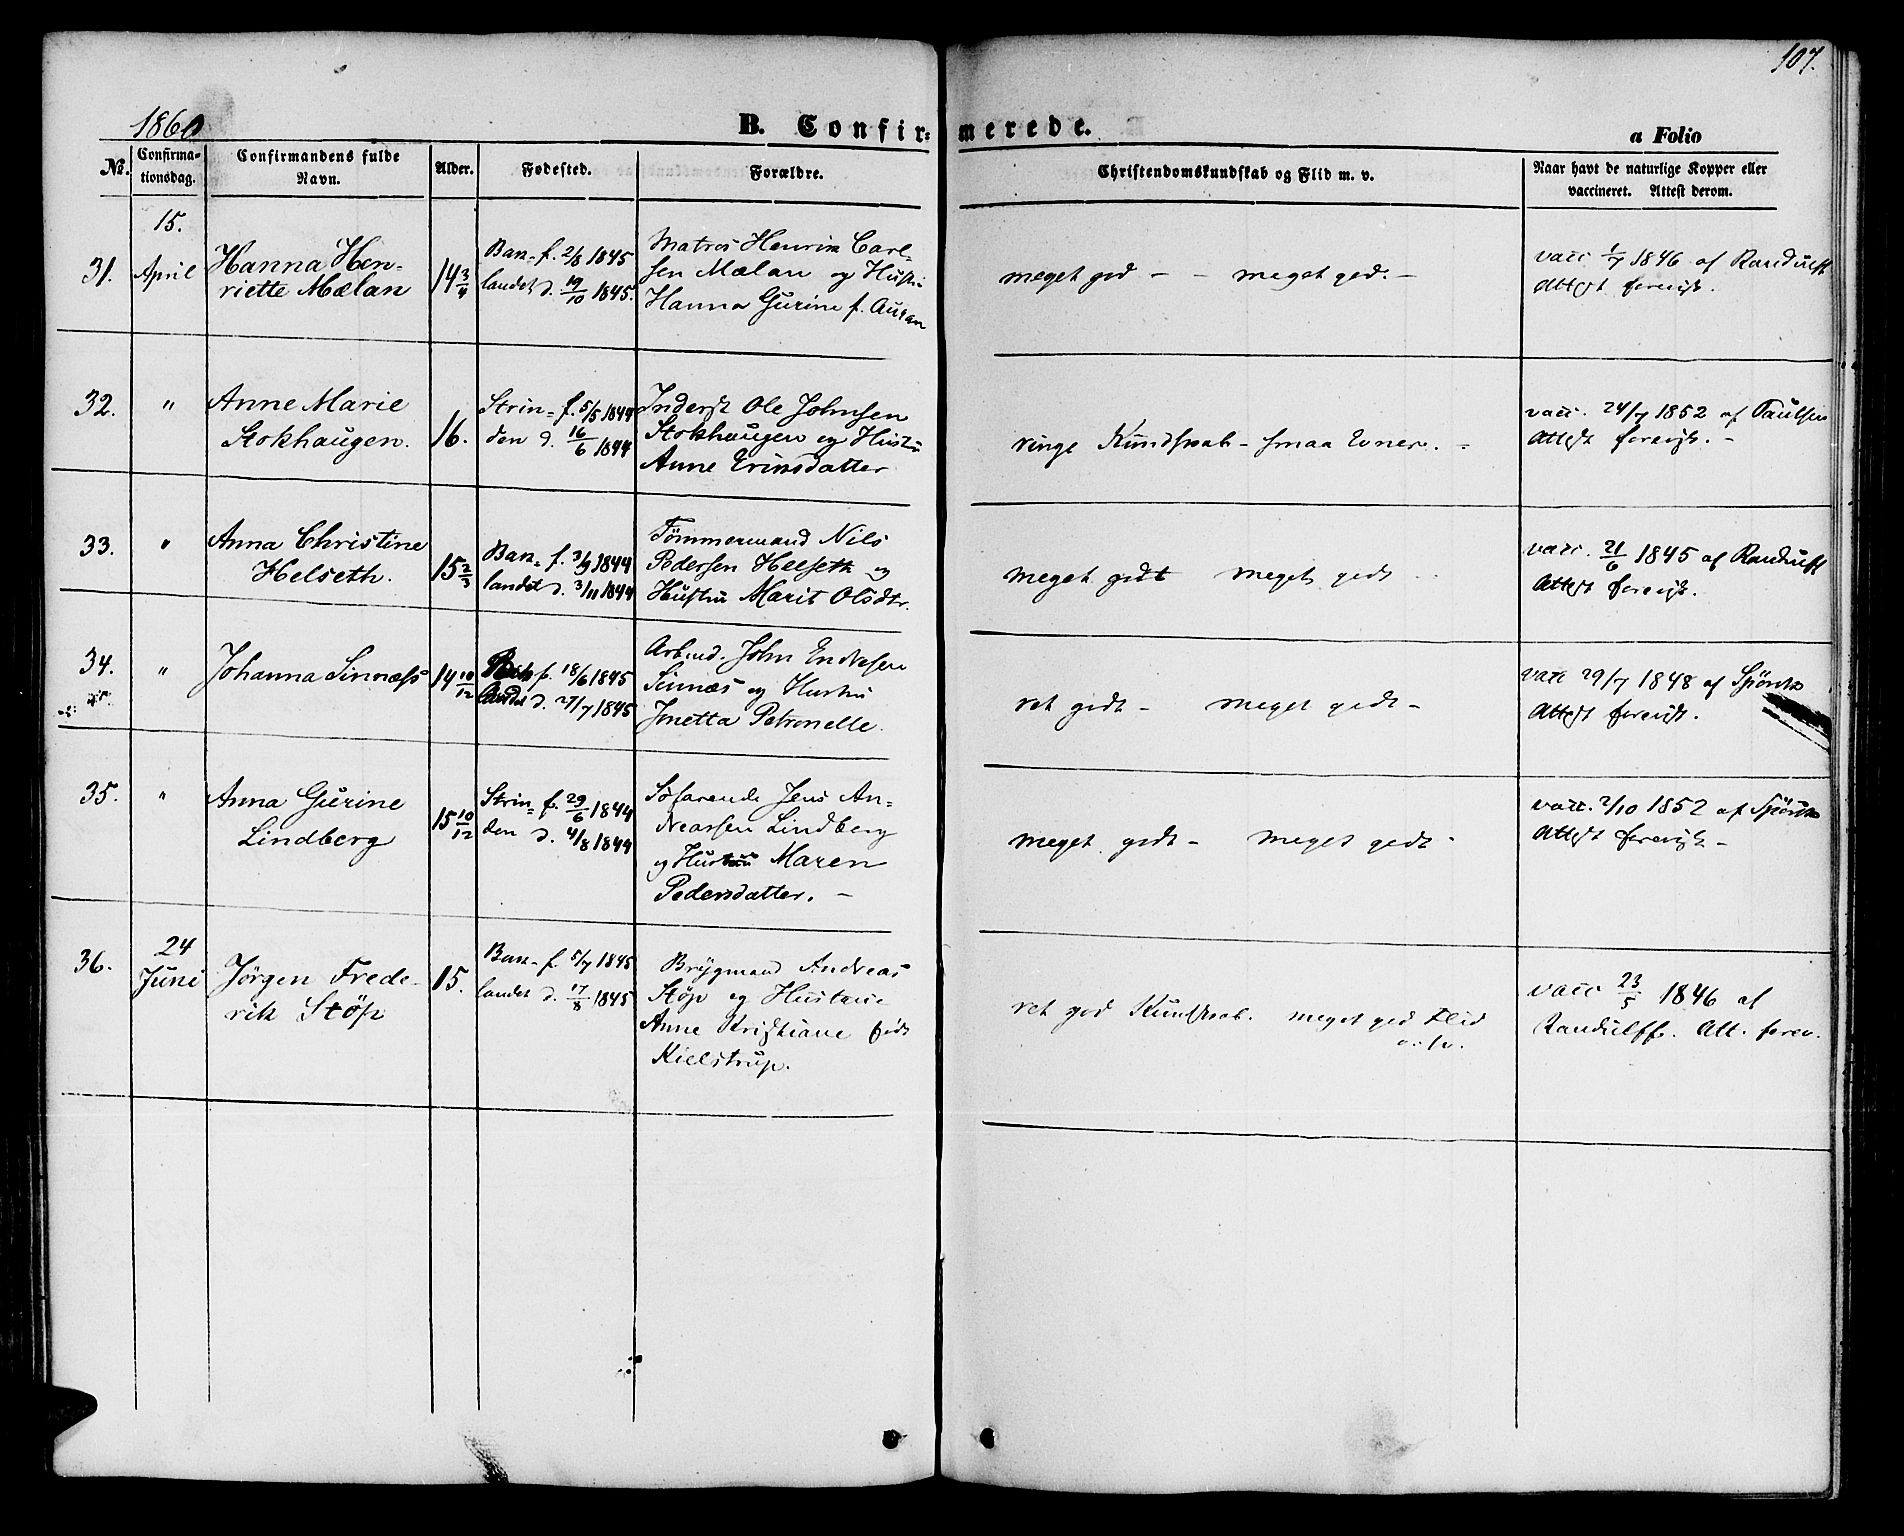 107.
1860
B. Confir=merede.
a Folio
No. Confirmationsdag. Confirmandens fulde Navn. Alder. Fødested. Forældre. Christendomskundskab og Flid m. v. Naar havt de naturlige Kopper eller vaccineret. Attest derom.
15.
31. April
Hanna Hen-
riette Mælan
14 3/4
Bak= f. 2/8 1845
landet d. 19/10 1845.
Matros Henrik Carl-
sen Mælan og Hustru
Hanna Gurine f. Aunan
meget god - - meget god. -
vacc 1/7 1846 af Randulff
Attest foreviist.
32. "
Anne Marie
Stokhaugen.
16.
Strin= f. 5/5 1844
den d. 16/6 1844
Inderst Ole Johnsen
Stokhaugen og Hustru
Anne Eriksdatter
ringe Kundskab - smaa Evner. -
vacc. 24/7 1852 af Paulsen
Attest foreviist. -
33. "
Anna Christine
Helseth.
15 2/3
Bak= f. 3/9 1844
landet d. 3/11 1844
Tømmermand Nils
Pedersen Helseth og
Hustru Marit Olsdtr.
meget godt meget godt
vacc. 21/6 1845 af Randulff
Attest foreviist.
34. "
Johanna Sinnæss
14 10/12
Bak f. 18/6 1845
landet d. 27/7 1845
Arbmd. John Endresen
Sinnæs og Hustru
Jnetta Petronelle.
ret godt - meget godt -
vacc 29/7 1848 af Spørck
Attest foreviist.
35. "
Anna Gurine
Lindberg
15 10/12
Strin= f. 29/6 1844
den d. 4/8 1844
Søfarende Jens An=
dreassen Lindberg
og Hustru Maren
Pedersdatter. -
meget godt - meget godt -
vacc. 2/10 1852 af Spørck
Attest foreviist -
24
36. Juni
Jørgen Frede-
rik Støp
15.
Bak= f. 5/7 1845
landet d. 17/8 1845
Brygmand Andreas
Støp og Hustrue
Anne Kristiane født
Kielstrup.
ret god Kundskab. meget god Flid
vacc 23/5 1846 af
Randulff. Att. forev.